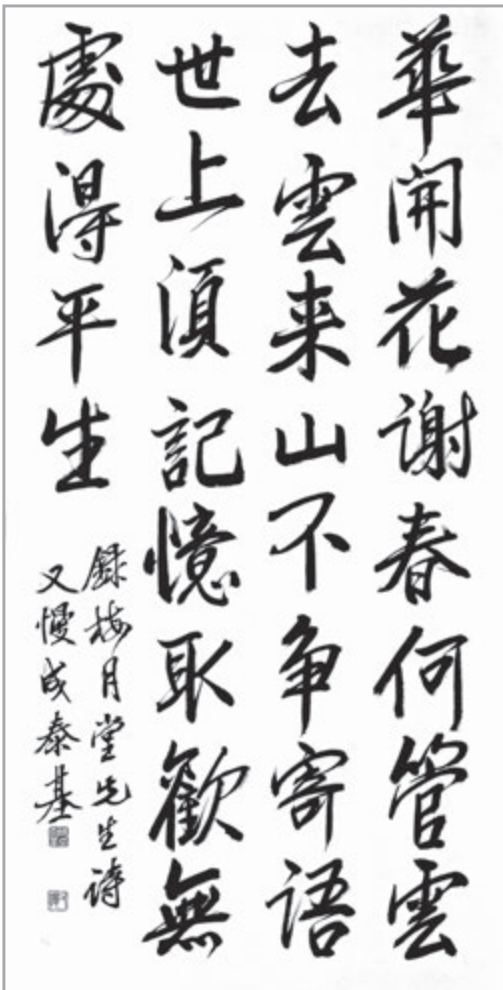 華開花謝春何管雲
去雲来山不争寄語
世上湏記憶取歡無
處得平生
録梅月堂先生詩
又慢成泰基